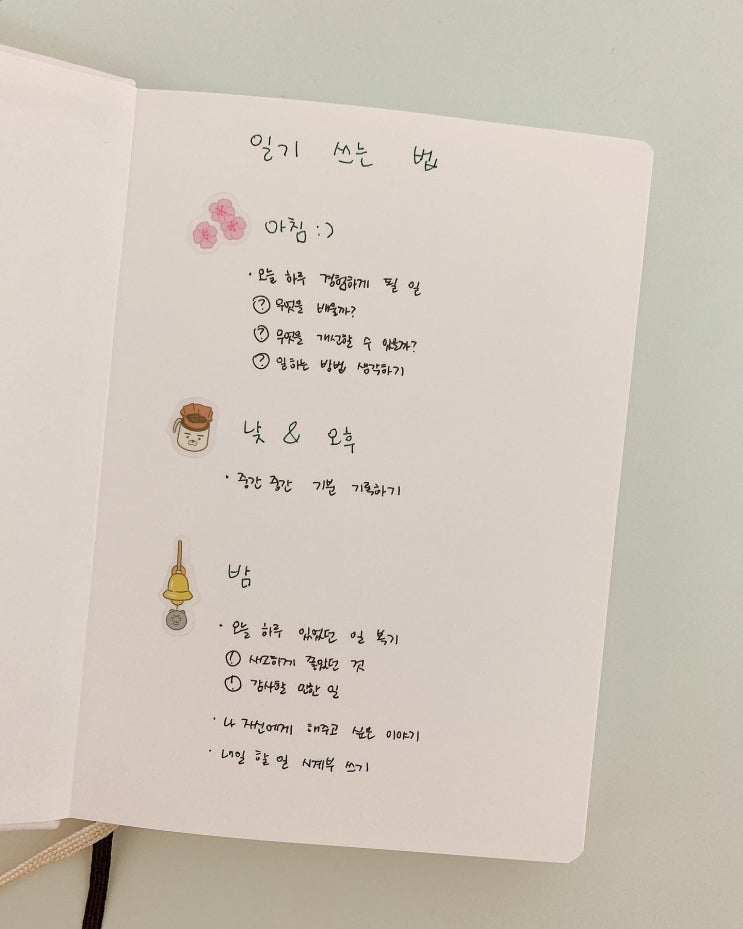 일기 쓰는 법
아침 :)
· 오늘 하루 경험하게 될 일
? 무엇을 배울까?
? 무엇을 개선할 수 있을까?
? 일하는 방법 생각하기
낮 & 오후
· 중간 중간 기분 기록하기
밤
· 오늘 하루 있었던 일 복기
! 새로하게 좋았던 것
! 감사할 만한 일
· 나 자신에게 해주고 싶은 이야기
· 내일 할 일 시계부 쓰기